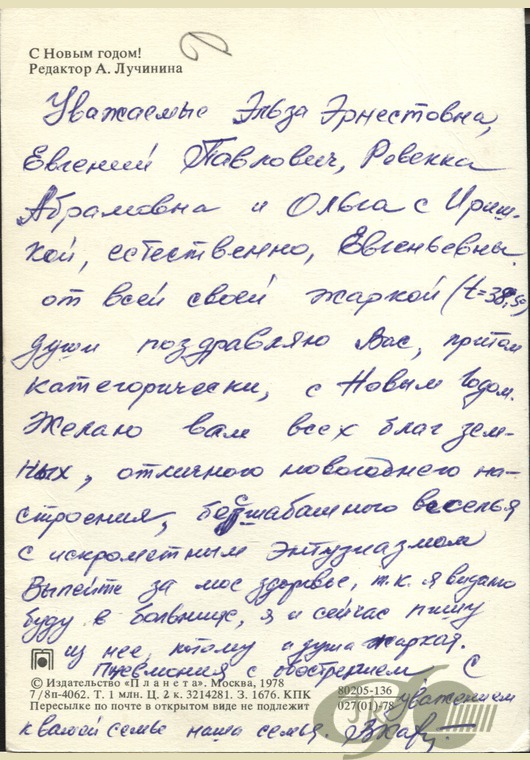 С Новым годом!
Редактор А. Лучинина
Уважаемые Эльза Эрнестовна,
Евгений Павлович, Ревекка
Абрамовна и Ольга с Ириш-
кой, естественно, Евгеньевны.
от всей своей жаркой (t=38,5°)
души поздравляю Вас, притом
категорически, с Новым Годом.
Желаю вам всех благ зем-
ных, отличного новогоднего на-
строения, бесшабашного веселья
с искрометным энтузиазмом
Выпейте за мое здоровье, т.к. я видимо
буду в больнице, я и сейчас пишу
из нее, потому и душа жаркая.
Пневмония с обострением. С
© Издательство «Планета». Москва, 1978
7/8п-4062. Т. 1 млн. Ц. 2 к. 3214281. З. 1676. КПК
Пересылке по почте в открытом виде не подлежит
80205-136
027(01)-78
уважением
к вашей семье наша семья.